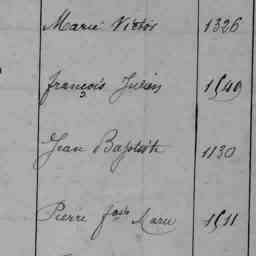 Marie Victor 1326
françois Julien 1549
Jean Baptiste 1130
Pierre fois Marie 1511